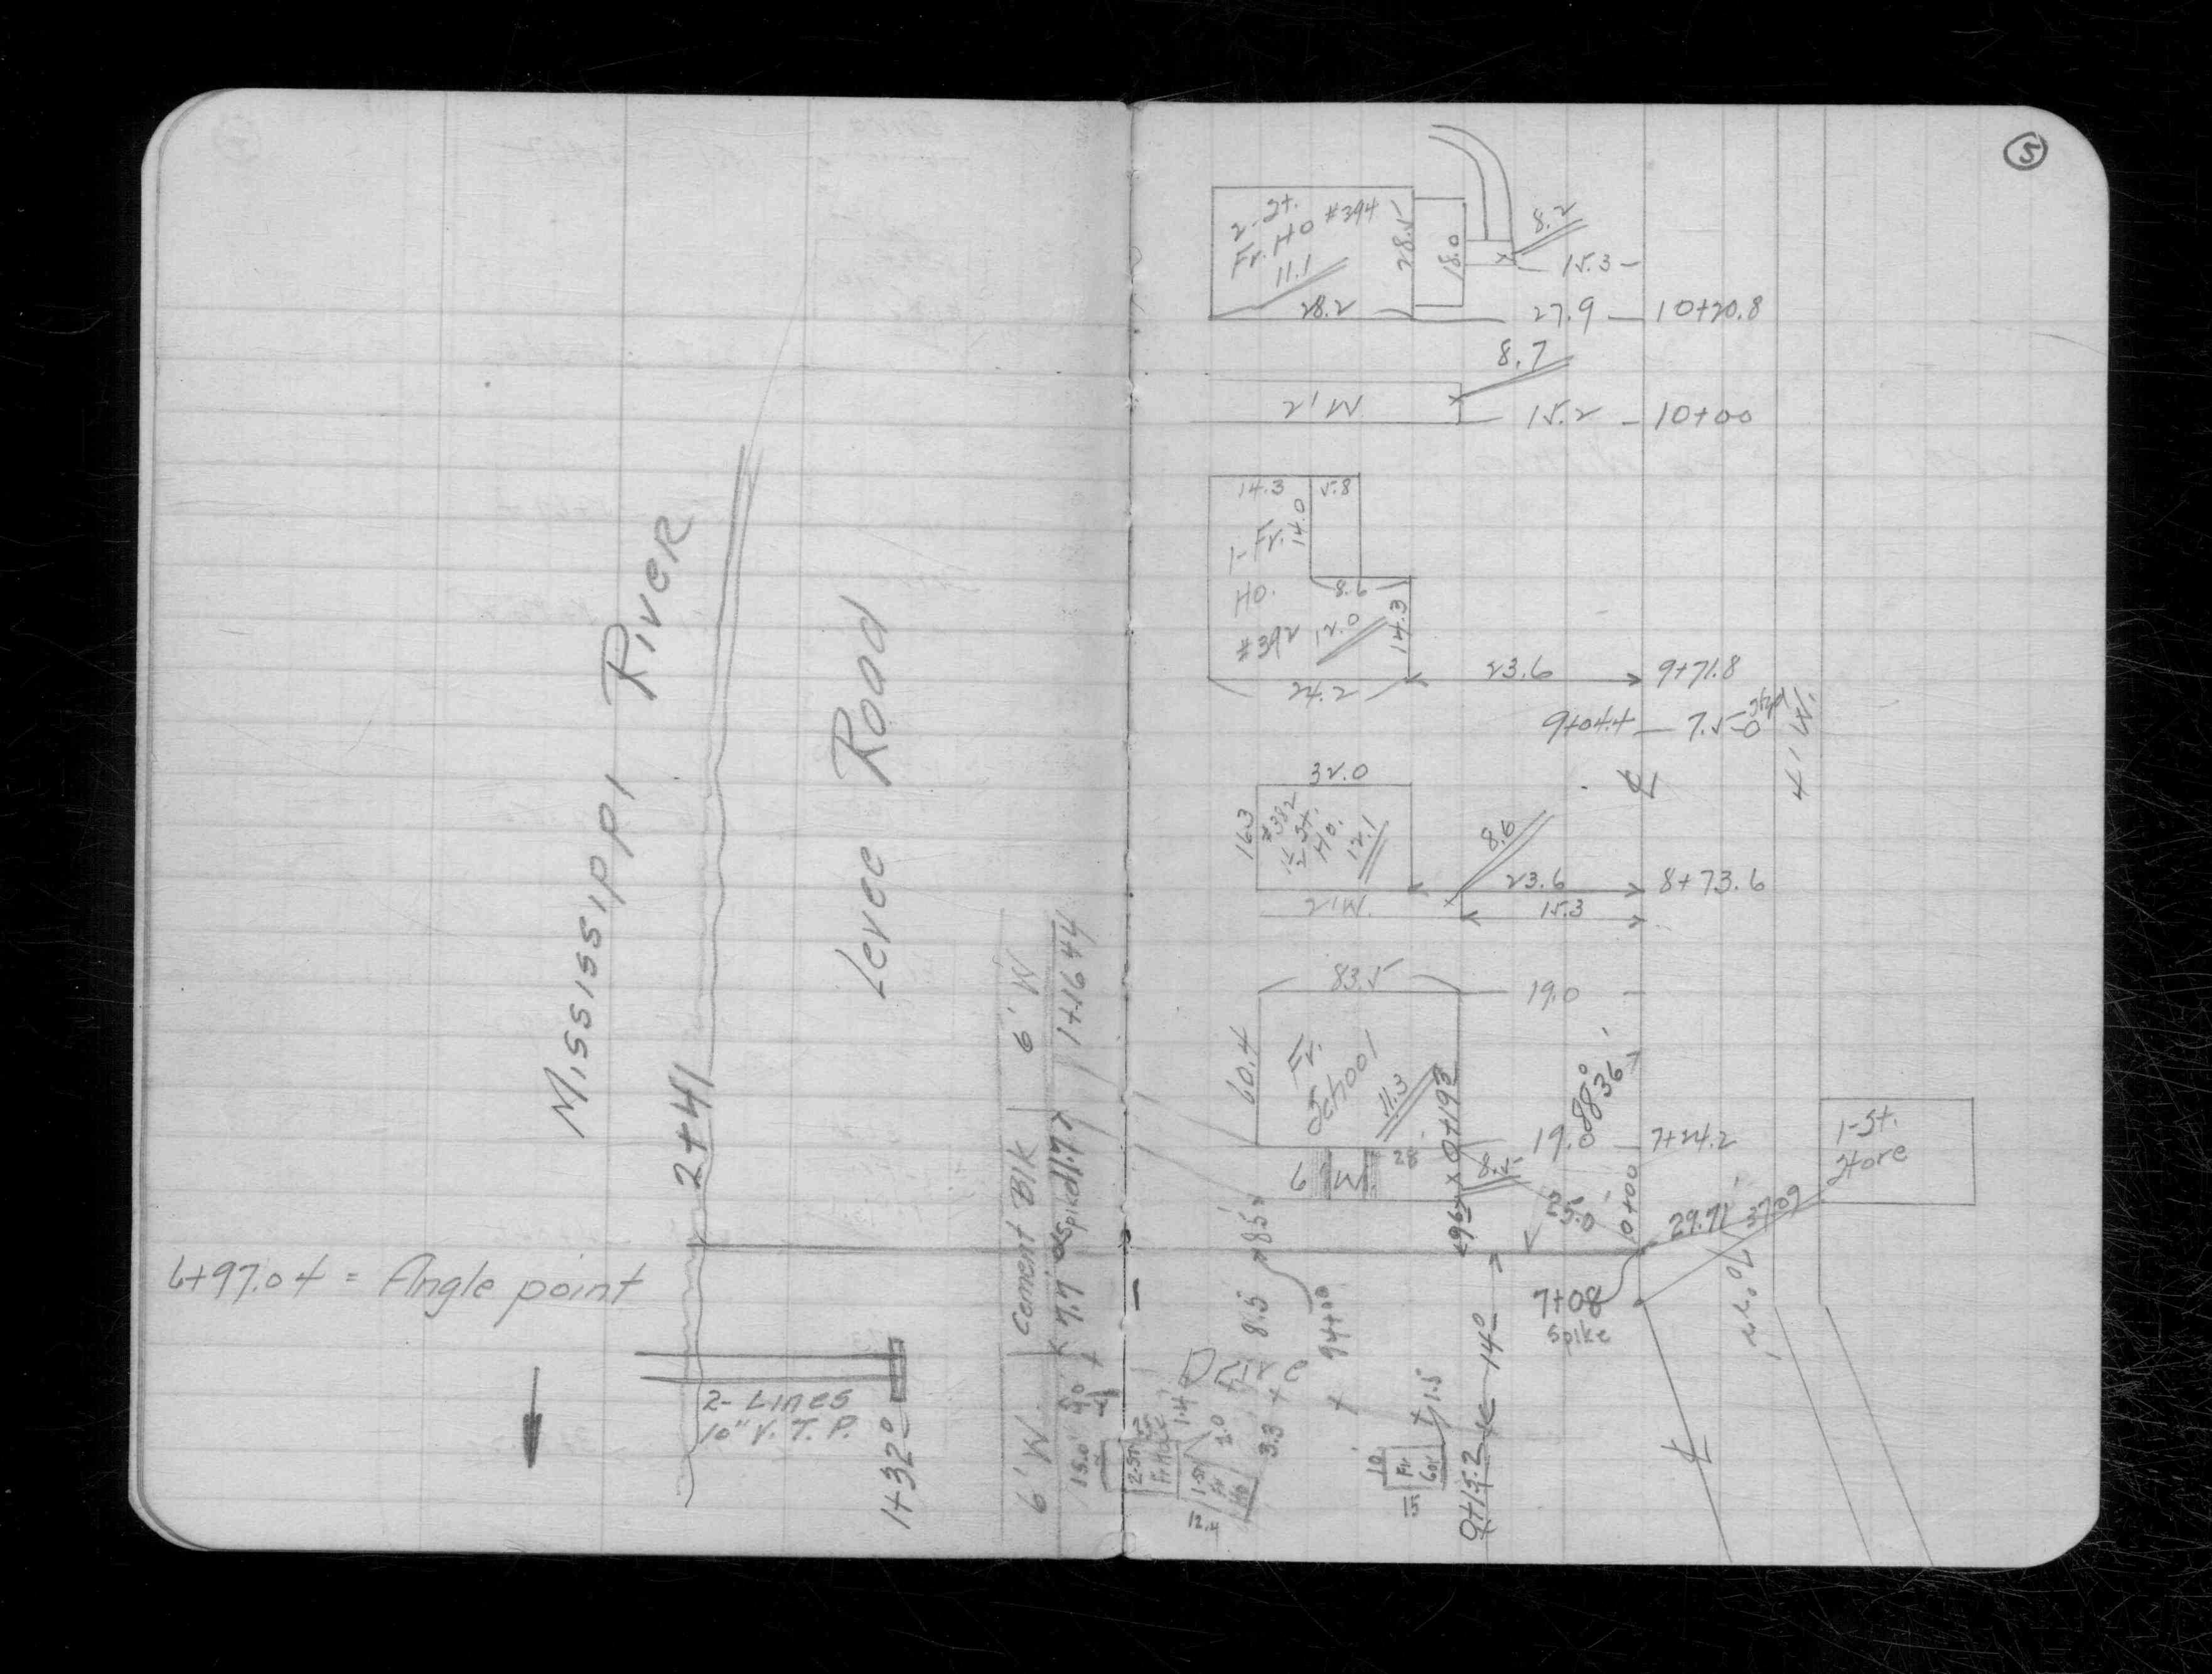 5
2-St.
Fr. Ho #394
11.1
28.5
18.0
28.2
8.2
15.3
27.9 10+20.8
8.7
2'W
15.2 10+00
14.3 5.8
14.0
1-Fr.
Ho.
#392
12.0
8.6
14.3
24.2
23.6 9+71.8
9+04.4
4'W.
32.0
16.3
#382
1½ St.
Ho.
12.1
8.6
23.6 8+73.6
2'W.
15.3
83.5
19.0
60.4
Fr.
School
11.3
88°36'
19.0 7+24.2
6'W
25.0
0+00
29.71' 37.09
1-St.
Store
7+08
Spike
94+00
8.5
Drive
3.3
1.5
14°
0+15.2
12.4
Mississippi River
Levee Road
2+41
6+97.04 = Angle point
2-Lines
10" V.T.P.
1+32°
6'W. Cement Blk 6'W